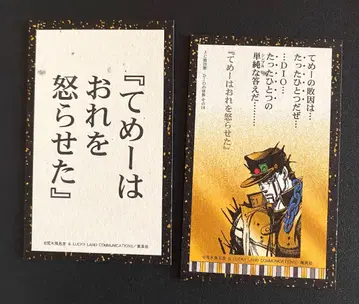 『てめーは
おれを
怒らせた』
©荒木飛呂彦 & LUCKY LAND COMMUNICATIONS/集英社
てめーの敗因は…
たったひとつだぜ…
…DIO…
たったひとつの
単純な答えだ………
『てめーはおれを怒らせた』
©荒木飛呂彦 & LUCKY LAND COMMUNICATIONS/集英社